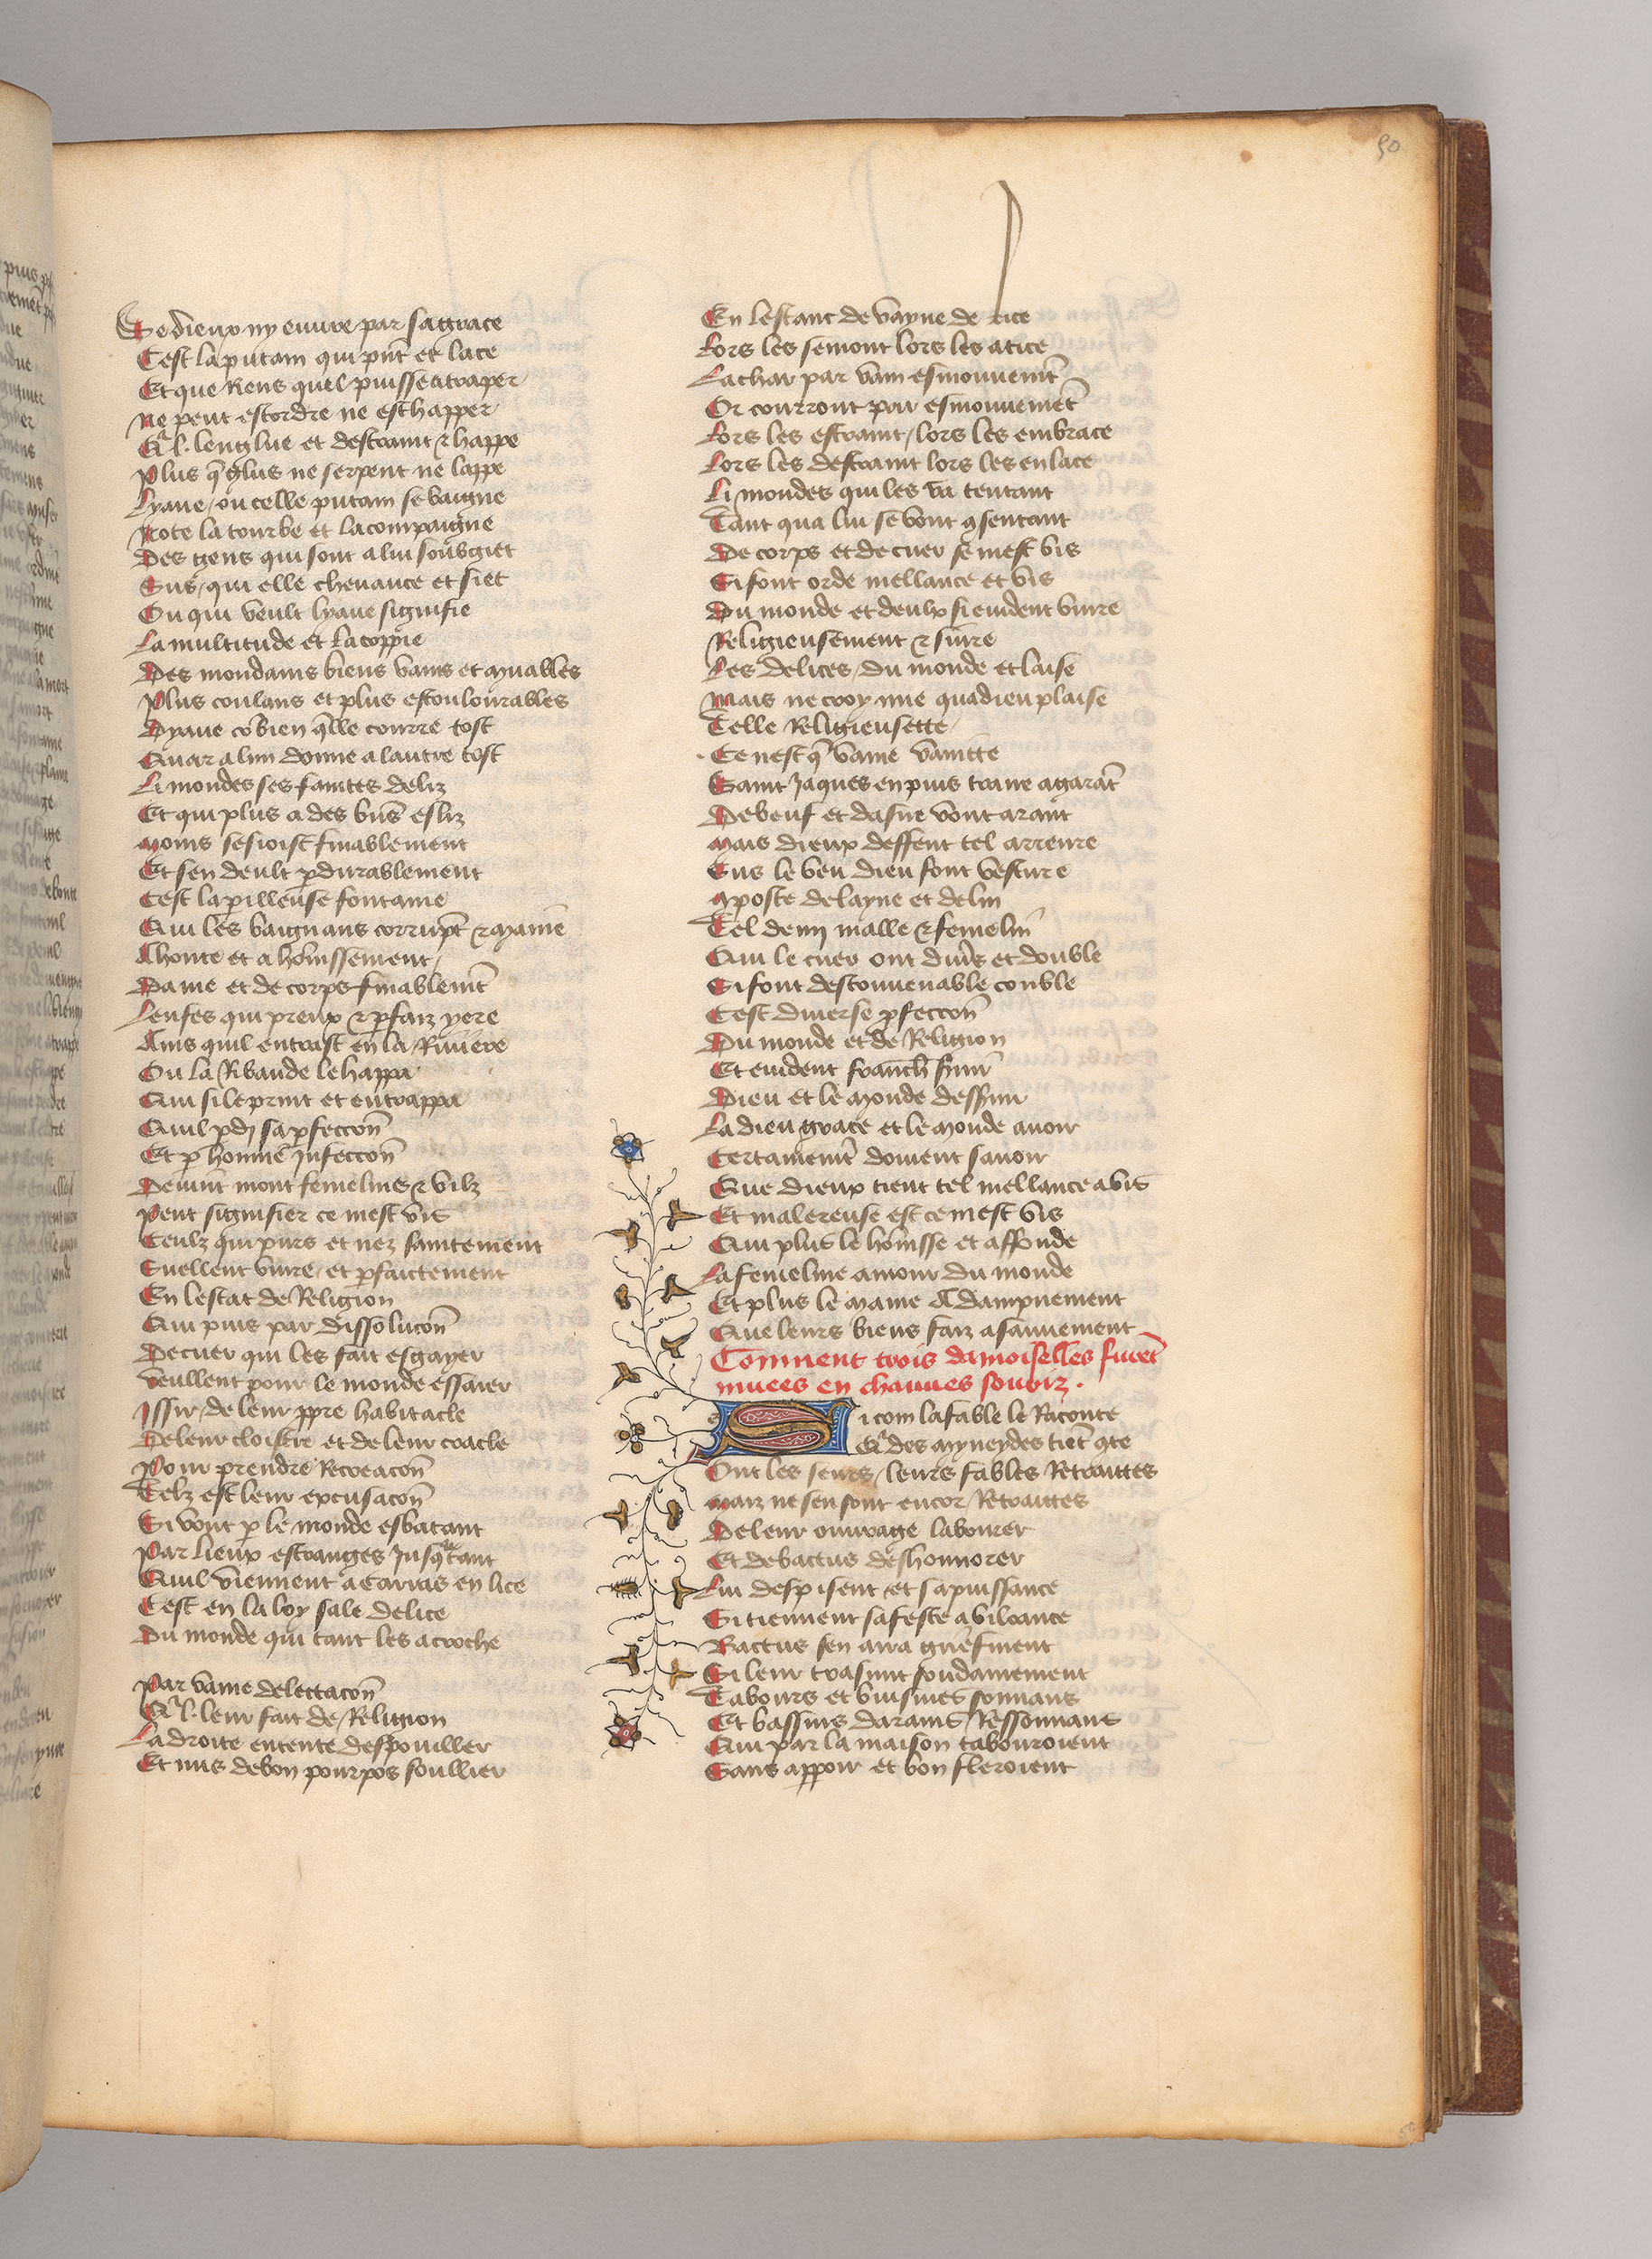 50
Se dieux ny euure par sa grace
Cest la putain qui prent et lace
Et que Riens quel puisse atraper
Ne peut estordre ne eschapper
Q'l lenglue et destraint & happe
Plus q̄ glus ne serpent ne lappe
Lyaue ou celle putain se baigne
Note la tourbe et la compaigne
Des gens qui sont a lui soubgiet
Sus qui elle cheuauce et siet
Ou qui veult lyaue signifie
La multitude et la coppie
Des mondains biens vains et muables
Plus coulans et plus escoulourables
Dyaue cōbien q̄lle courre tost
Quar a lun donne a lautre tost
Li mondes ses faintes deliz
Et qui plus a des biēs esliz
Moins sesioist finablement
Et sen deult pdurablement
Cest la pilleuse fontaine
Qui les baignans corrumpt & maine
A honte et a honissement
Dame et de corps finablemēt
Lenfes qui preux & pfaiz yere
Ains quil entrast en la Riuiere
Ou la Ribaude le happa
Qui si le print et entrappa
Quil pdi sa pfeccoñ
Et p honnie Infeccoñ
Deuint mont femelins & vilz
Peut signifier ce mest vis
Ceulz qui purs et nez saintement
Suellent viure et pfaictement
En lestat de Religion
Qui puis par dissolucoñ
De cuer qui les fait esgayer
Veullent pour le monde essaier
Issir de leur ppre habitacle
De leur cloistre et de leur cracle
Pour prendre Recreacoñ
Telz est leur excusacoñ
Si vont p le monde esbatant
Par lieux estranges Jusq̄ tant
Quil viennent a Carrias en lice
Cest en la loy sale delice
Du monde qui tant les acroche
Par vaine delectacoñ
Q'l leur fait de Religion
La droite entente despouiller
Et nus de bon pourpos soullier
En lestanc de vayne de lice
Lors les semont lors les atice
La char par vain esmouuemēt
Or courront par esmouuemēt
Lors les estraint lors les embrace
Lors les destraint lors les enlace
Li mondes qui les va tentant
Tant qua lui se vont ɔsentant
De corps et de cuer se mest vis
Si font orde mellance et vis
Du monde et deulx si cuident viure
Religieusement & suire
Les delices du monde et laise
Mais ne croy mie qua dieu plaise
Telle Religieusette
Ce nest q̄ vaine vanitte
Saint Jaques en puis traire a garāt
De beuf et dasne vont arant
Mais dieux deffent tel arreure
Sus le veu dieu font vesture
Aposte de layne et de lin
Tel demi malle & femelin
Qui le cuer ont diuers et double
Si font desconuenable couble
Cest diuerse pfeccoñ
Du monde et de Religion
Et cuident franch suir
Dieu et le monde desseruir
La dieu grace et le monde auoir
Certainemēt doiuent sauoir
Que dieux tient tel mellance a vis
Et malereuse est ce mest vis
Qui plus le honisse et affonde
La femeline amour du monde
Et plus le maine A dampnement
Que leurs biens faiz a sauuement
Comment trois damoiselles furēt
muees en chauues souriz .
Si com la fable le Raconte
Q' des Myneydes tiēt ɔte
Ont les seurs leurs fables Retraittes
Maiz ne sen sont encor Retraittes
De leur ouurage labourer
Et de bactus deshonnorer
Lui desprisent et sa puissance
Si tiennent sa feste a viltance
Bactus sen aira griefment
Si leur trasmit soudainement
Tabours et buisines sonnans
Et bassins darains Ressonnans
Qui par la maison tabouroient
Sans appoir et bon fleroient